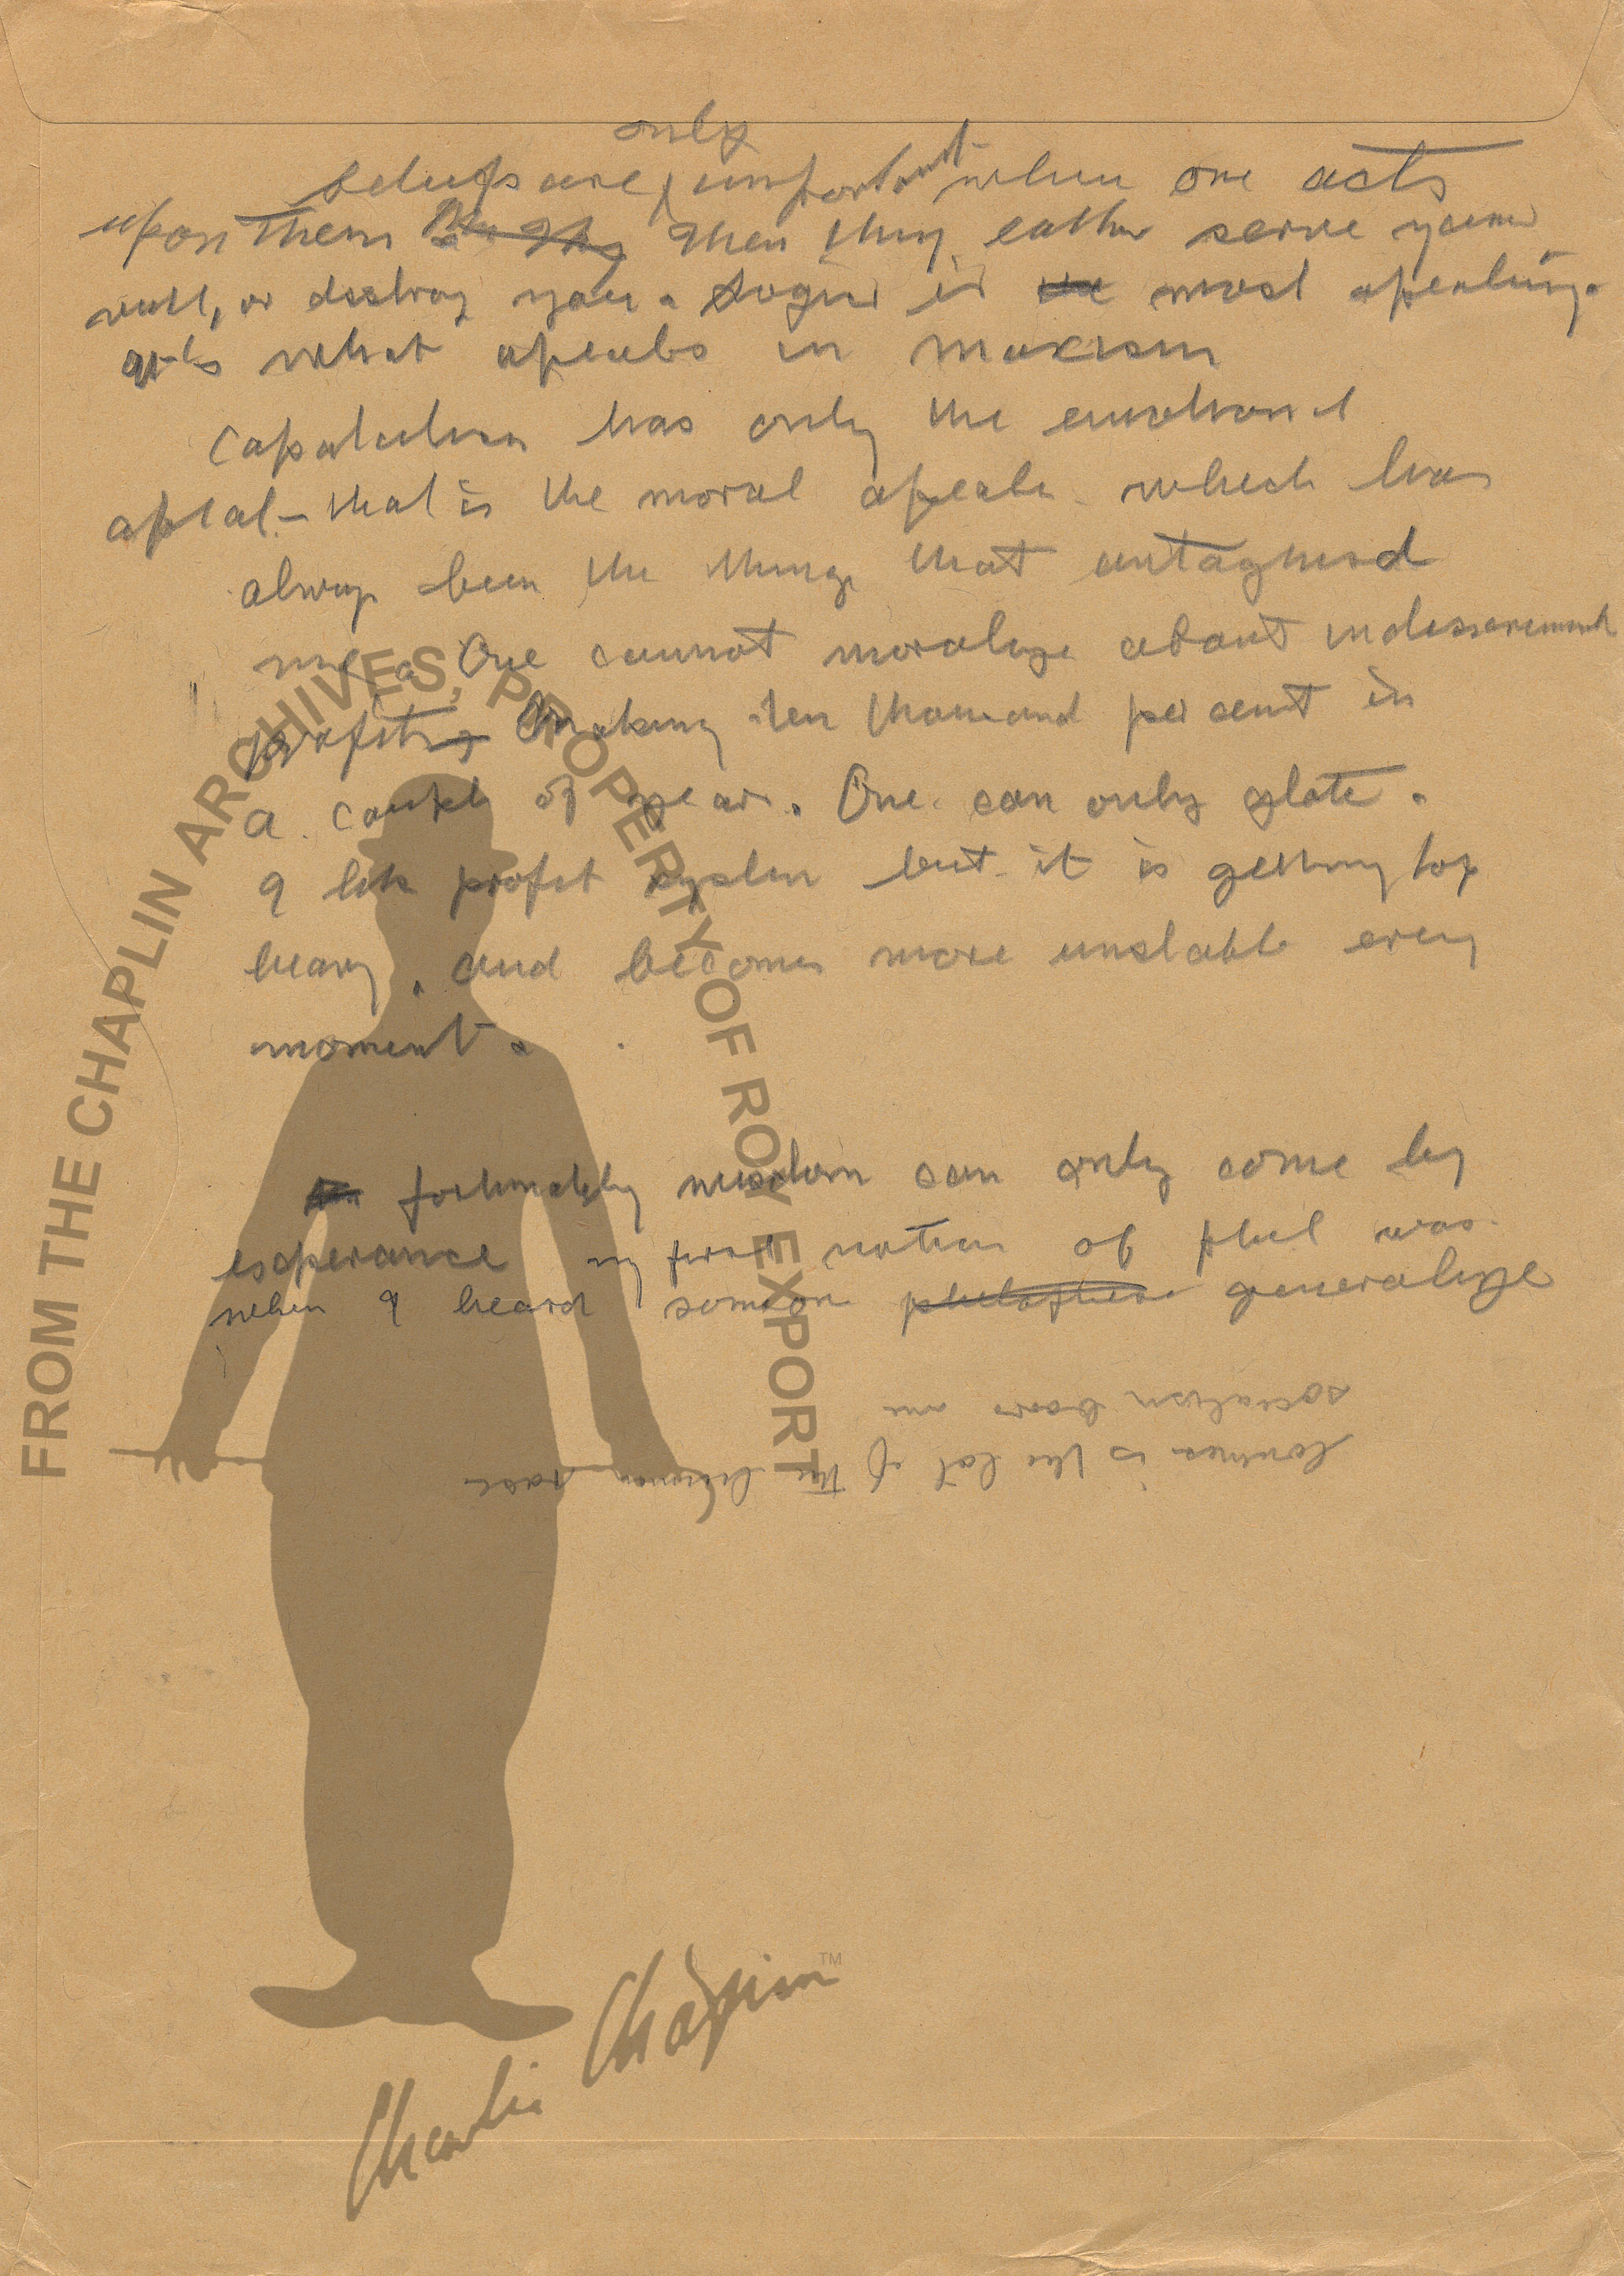 only
beleifs are important when one acts
upon them Then they eather serve you
well, or destroy you. Logic is most apealing.
its what apeals in marxism
Capatalism has only the emotional
apeal - that is the moral apeale which has
always been the things that antagnised
me. One cannot moralize about
profits making ten thousand per cent in
a couple of years. One can only glote.
I like profit system but it is getting top
heavy. and becomes more unstable every
moment.
fortunately wisdom can only come by
experance my first notion of phil was
when I heard someone generalize
Loneliness is the lot of the human race
socialism bores me
FROM THE CHAPLIN ARCHIVES, PROPERTY OF ROY EXPORT
Charlie Chaplin™